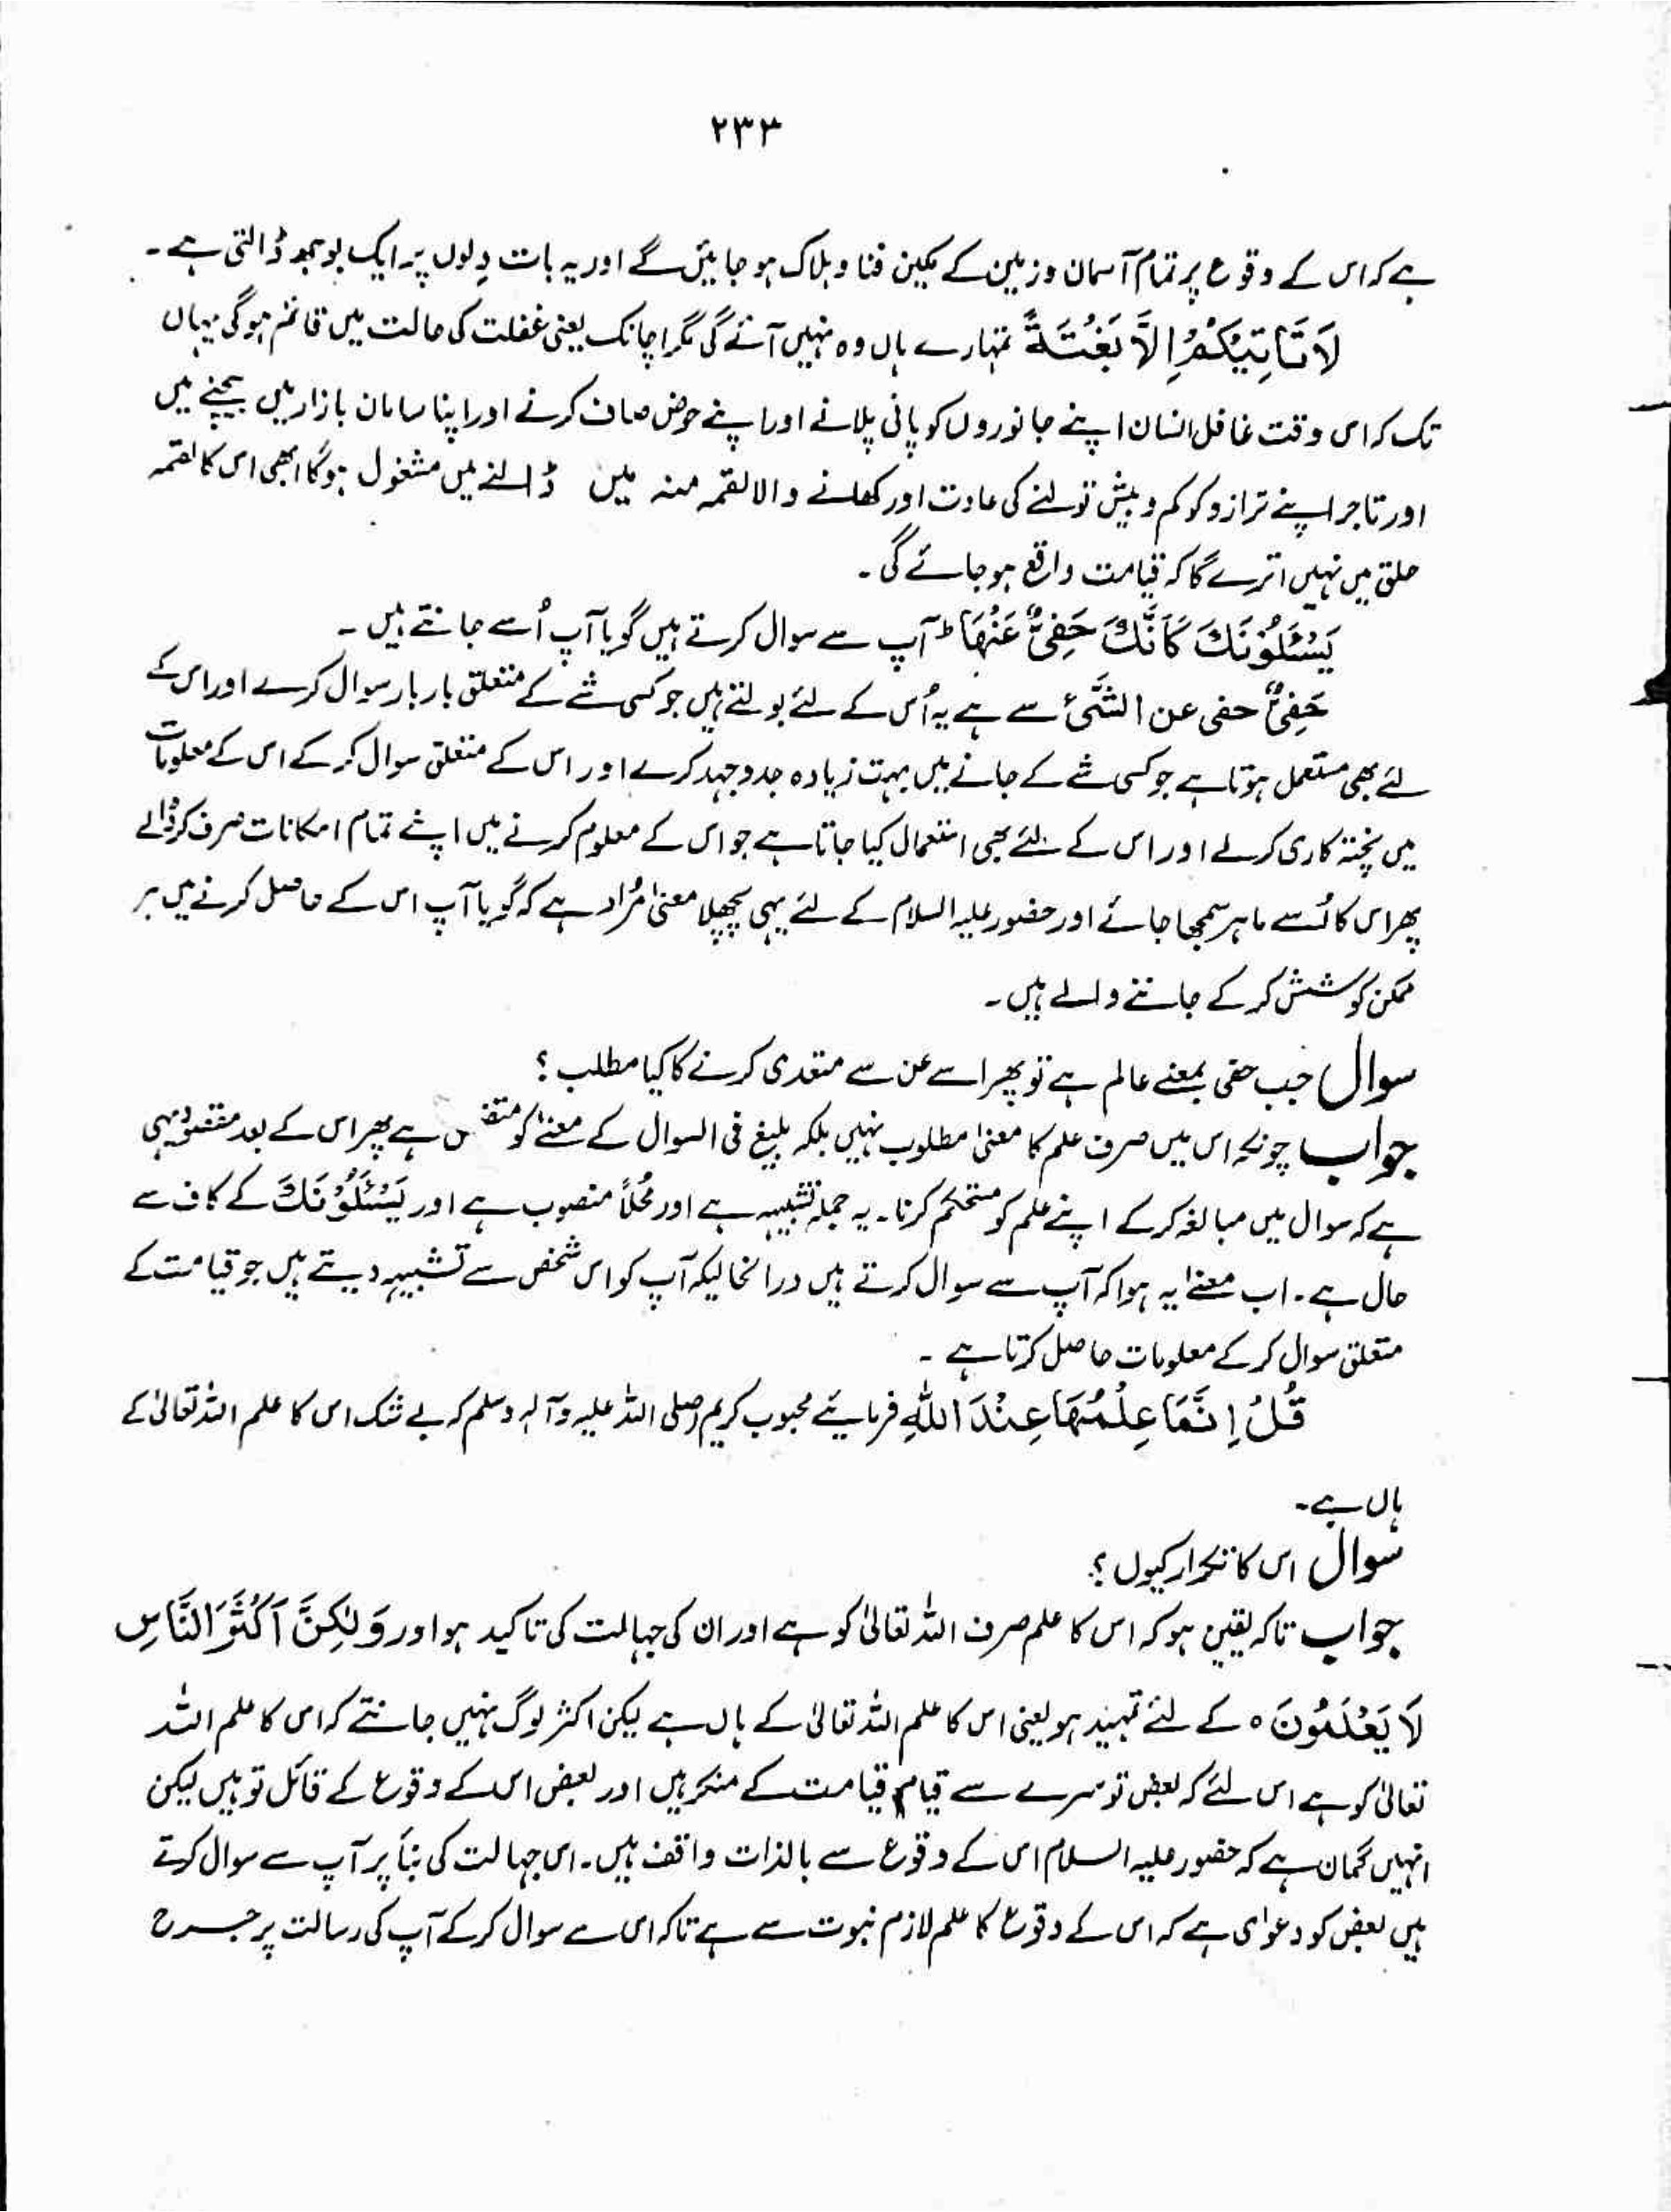 ۲۳۳
ہے کہ اس کے وقوع پر تمام آسمان و زمین کے مکین فنا و ہلاک ہو جائیں گے اور یہ بات دِلوں پر ایک بوجھ ڈالتی ہے۔
لَا تَاْتِيْكُمْ اِلَّا بَغْتَةً تمہارے ہاں وہ نہیں آئے گی مگر اچانک یعنی غفلت کی حالت میں قائم ہو گی یہاں
تک کہ اس وقت غافل انسان اپنے جانوروں کو پانی پلانے اور اپنے حوض صاف کرنے اور اپنا سامان بازار میں بیچنے میں
اور تاجر اپنے ترازو کو کم و بیش تولنے کی عادت اور کھانے والا لقمہ منہ میں ڈالنے میں مشغول ہوگا ابھی اس کا لقمہ
حلق میں نہیں اترے گا کہ قیامت واقع ہو جائے گی۔
يَسْئَلُوْنَكَ كَاَنَّكَ حَفِيٌّ عَنْهَا ط آپ سے سوال کرتے ہیں گویا آپ اُسے جانتے ہیں۔
حَفِیٌّ حفی عن الشَّیْٔ سے ہے یہ اُس کے لئے بولتے ہیں جو کسی شے کے متعلق بار بار سوال کرے اور اس کے
لئے بھی مستعمل ہوتا ہے جو کسی شے کے جانے میں بہت زیادہ جدوجہد کرے اور اس کے متعلق سوال کر کے اس کے معلومات
میں پختہ کاری کرلے اور اس کے لئے بھی استعمال کیا جاتا ہے جو اس کے معلوم کرنے میں اپنے تمام امکانات صرف کر ڈالے
پھر اس کا اُسے ماہر سمجھا جائے اور حضور علیہ السلام کے لئے یہی پچھلا معنیٰ مُراد ہے کہ گویا آپ اس کے حاصل کرنے میں ہر
ممکن کوشش کر کے جاننے والے ہیں۔
سوال جب حفی بمعنے عالم ہے تو پھر اسے عن سے متعدی کرنے کا کیا مطلب؟
جواب چونکہ اس میں صرف علم کا معنیٰ مطلوب نہیں بلکہ بلیغ فی السوال کے معنےٰ کو ہے پھر اس کے بعد مقصود یہی
ہے کہ سوال میں مبالغہ کر کے اپنے علم کو مستحکم کرنا۔ یہ جملہ تشبیہہ ہے اور محُلاً منصوب ہے اور يَسْئَلُوْنَكَ کے کاف سے
حال ہے۔ اب معنےٰ یہ ہوا کہ آپ سے سوال کرتے ہیں درانحالیکہ آپ کو اس شخص سے تشبیہہ دیتے ہیں جو قیامت کے
متعلق سوال کر کے معلومات حاصل کرتا ہے۔
قُلْ اِنَّمَا عِلْمُهَا عِنْدَ اللّٰهِ فرمایئے محبوب کریم صلی اللہ علیہ وآلہ وسلم کہ بے شک اس کا علم اللہ تعالیٰ کے
ہاں ہے۔
سوال اس کا تکرار کیوں؟
جواب تاکہ یقین ہو کہ اس کا علم صرف اللہ تعالیٰ کو ہے اور ان کی جہالت کی تاکید ہو اور وَلٰكِنَّ اَكْثَرَ النَّاسِ
لَا يَعْلَمُوْنَ ہ کے لئے تمہید ہو یعنی اس کا علم اللہ تعالیٰ کے ہاں ہے لیکن اکثر لوگ نہیں جانتے کہ اس کا علم اللہ
تعالیٰ کو ہے اس لئے کہ بعض تو سرے سے قیام قیامت کے منکر ہیں اور بعض اس کے وقوع کے قائل تو ہیں لیکن
انہیں گمان ہے کہ حضور علیہ السلام اس کے وقوع سے بالذات واقف ہیں۔ اسی جہالت کی بنأ پر آپ سے سوال کرتے
ہیں بعض کو دعوٰی ہے کہ اس کے وقوع کا علم لازم نبوت سے ہے تاکہ اسی سے سوال کر کے آپ کی رسالت پر جرح